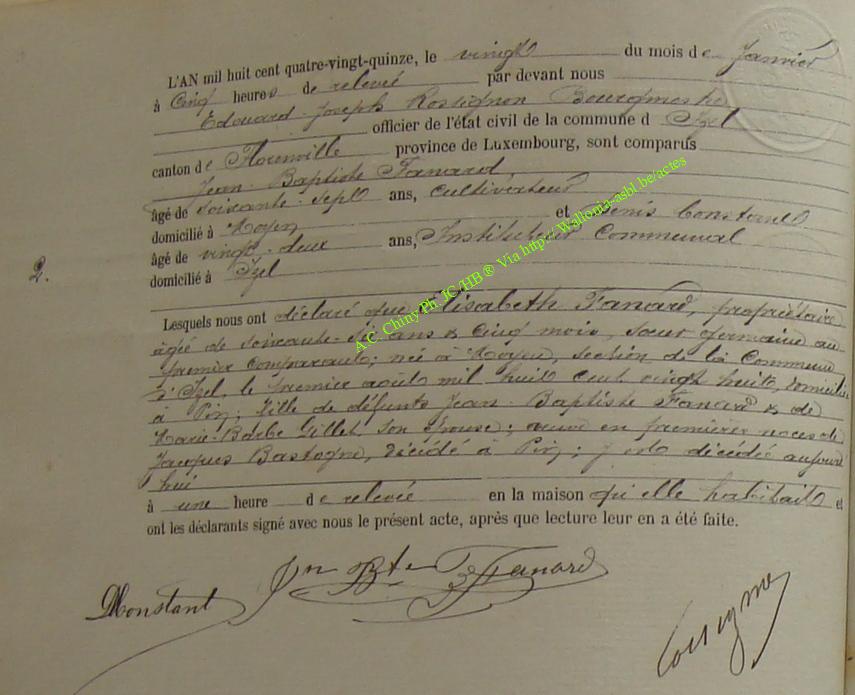 L'AN mil huit cent quatre-vingt-quinze, le vingt du mois de Janvier
à Cinq heures de relevée par devant nous
Edouard Joseph Rossignon Bourgmestre
officier de l'état civil de la commune d Izel
canton de Florenville province de Luxembourg, sont comparus
Jean Baptiste Fanard
âgé de soixante-sept ans, cultivateur
domicilié à Moyen et Denis Constant
âgé de vingt-deux ans, Instituteur Communal
domicilié à Izel
2.
Lesquels nous ont déclaré que Elisabeth Fanard, propriétaire
âgée de soixante-six ans & Cinq mois, sœur germaine au
premier Comparant; née à Moyen, section de la Commune
d'Izel, le premier août mil huit cent vingt huit, domiciliée
à Pin; fille de défunts Jean Baptiste Fanard & de
Marie-Barbe Gillet, son épouse; veuve en premières noces de
Jacques Bastogne, décédé à Pin; y est décédée aujourd
hui
à une heure de relevée en la maison qu'elle habitait et
ont les déclarants signé avec nous le présent acte, après que lecture leur en a été faite.
DConstant Jn Bte Fanard
A.C. Chiny Ph. JC/HB ® Via http://Wallonia-asbl.be/actes